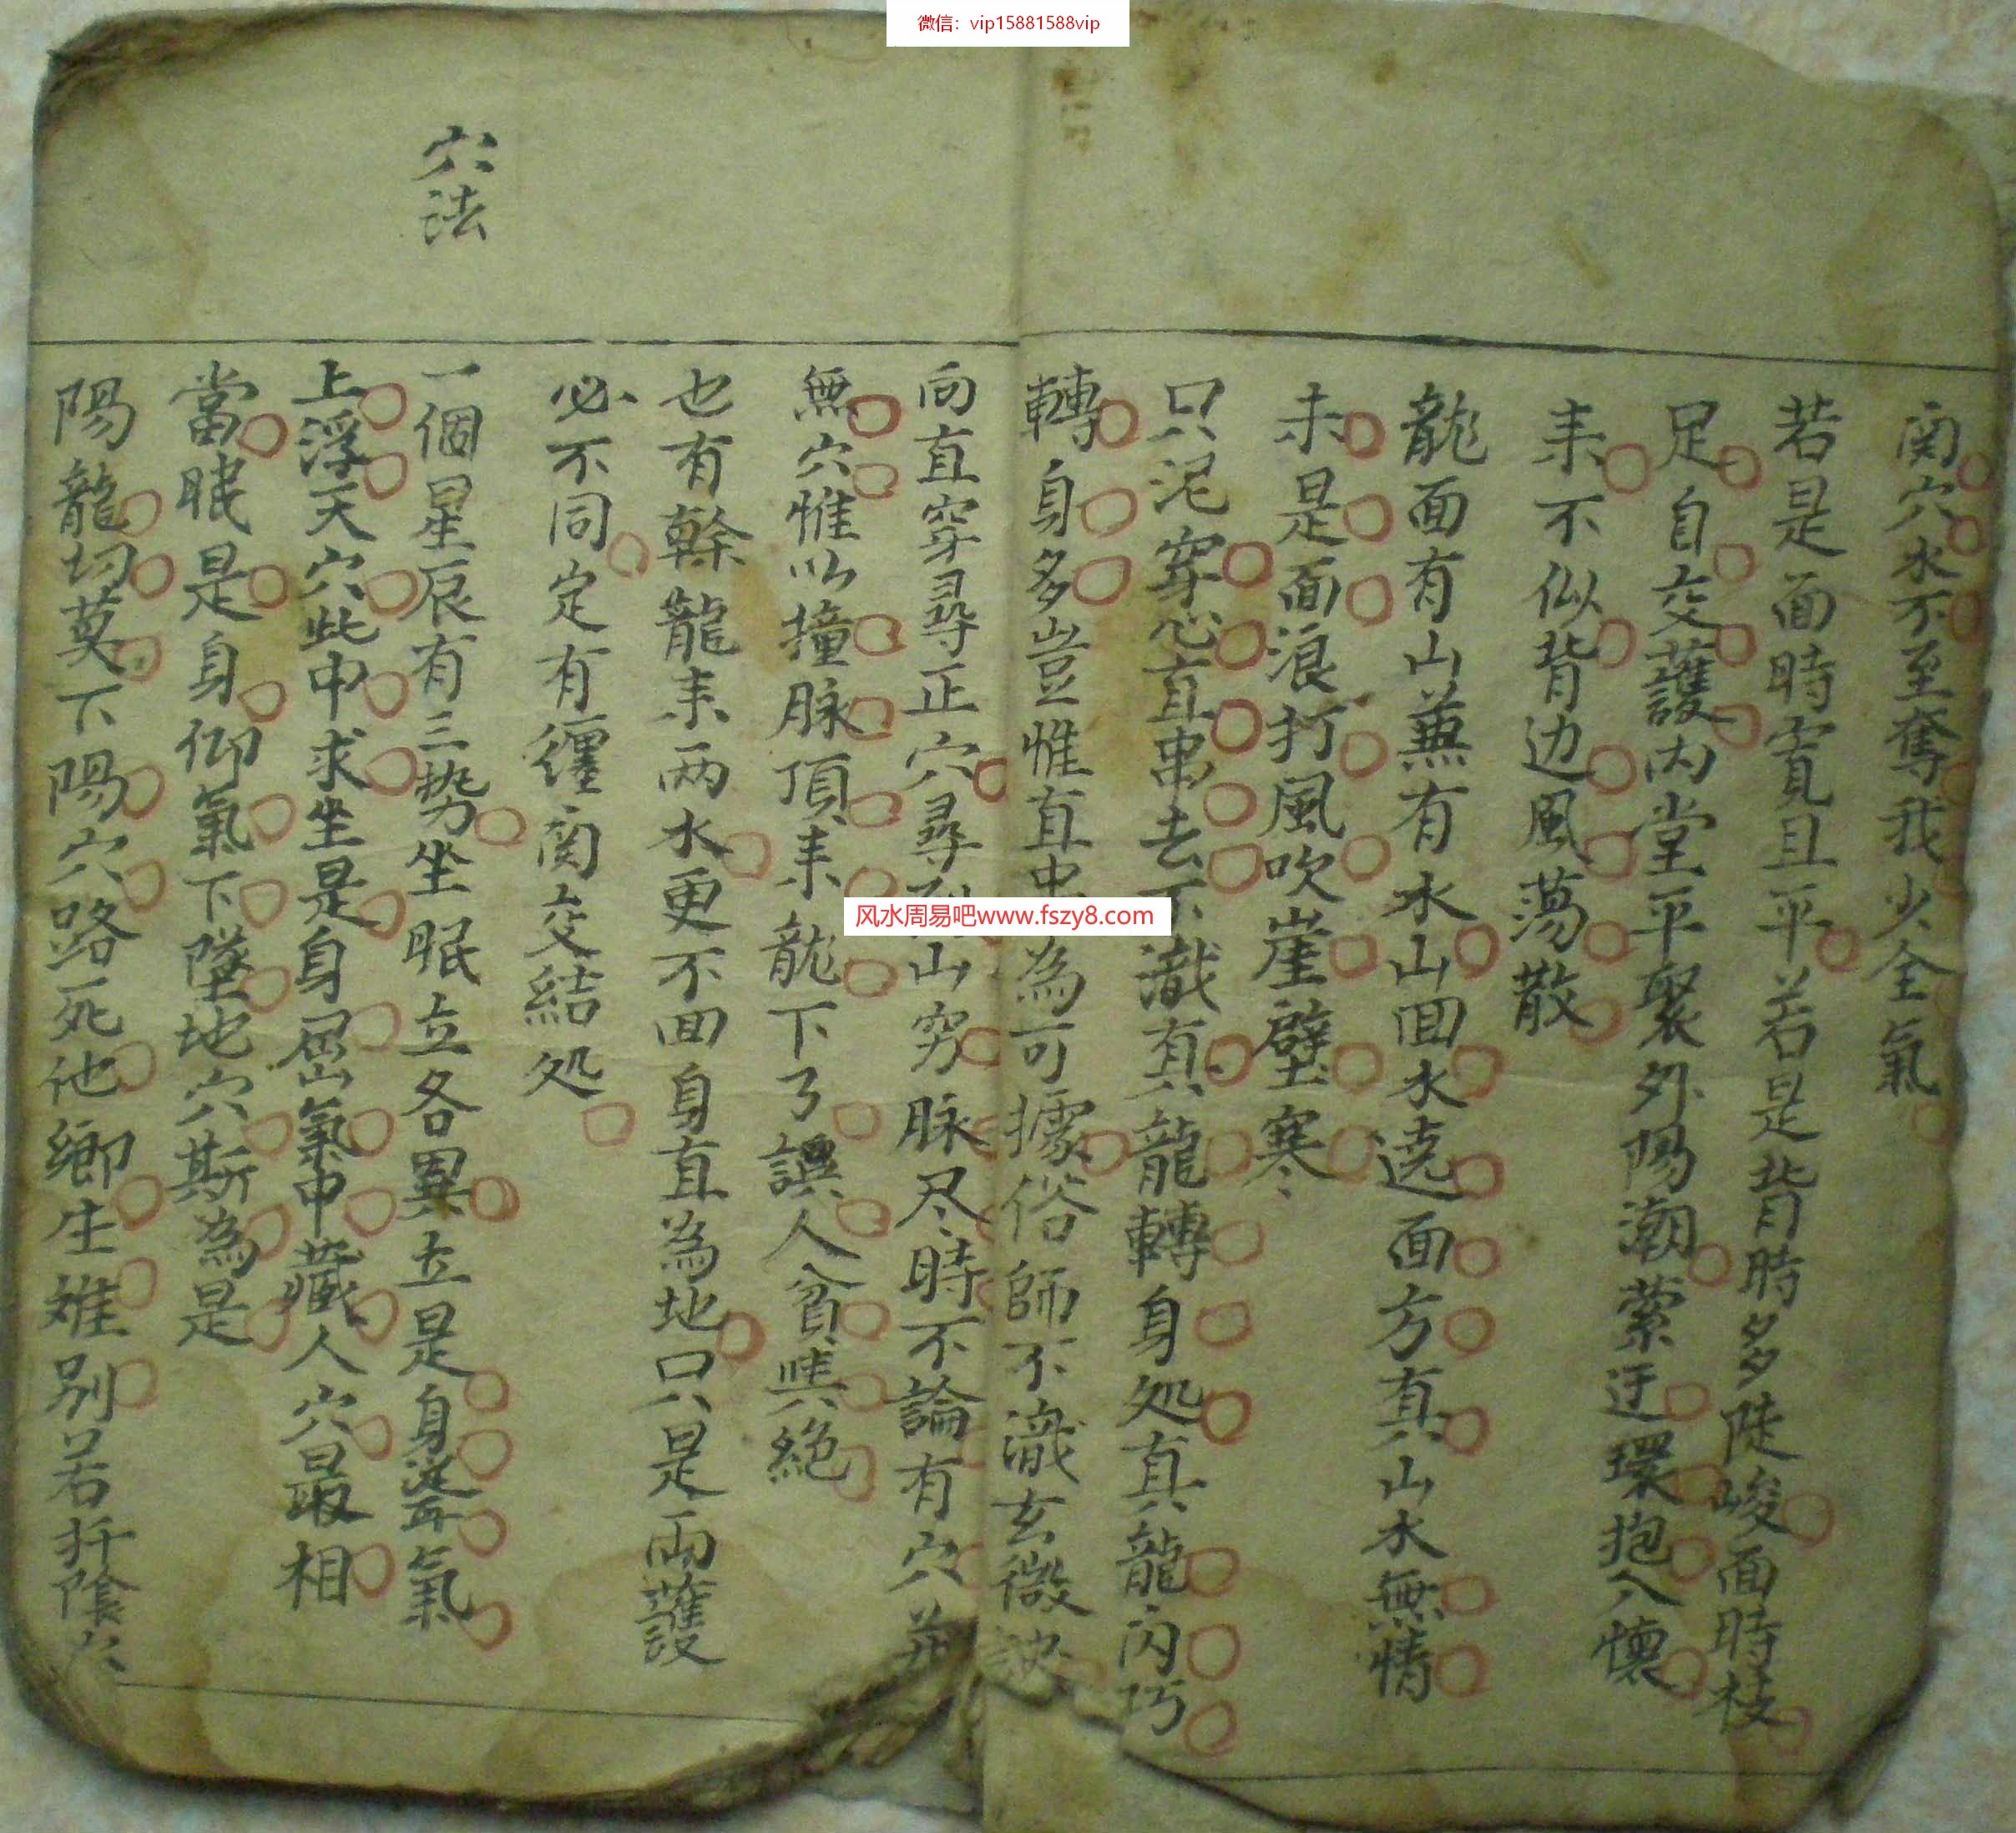 微信：vip15881588vip
関穴水不至奪我少全氣
若是面時寬且平若是背時多陡峻面時枝
足自交護内堂平聚外陽潮縈迂環抱入懷
来不似背边風蕩散
龍面有山兼有水山回水遶面方真山水無情
未是面浪打風吹崖壁寒
只泥穿心直串去不識真龍轉身処真龍閃巧
轉身多豈惟直串為可據俗師不識玄微訣
向直穿尋正穴尋到山窮脉尽時不論有穴并
無穴惟以撞脉頂来龍下了誤人貧與絶
也有幹龍来两水更不回身直為地只是両護
必不同定有纏関交結処
穴法
一個星辰有三势坐眠立各異立是身聳氣
上浮天穴此中求坐是身屈氣中藏人穴最相
當眠是身仰氣下墜地穴斯為是
陽龍切莫下陽穴路死他鄉生难别若扦陰穴
风水周易吧www.fszy8.com